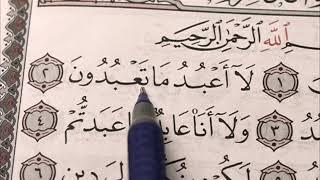 ـمِ ٱللَّهِ ٱلرَّحْمَٰنِ ٱلرَّحِيمِ
١ لَآ أَعْبُدُ مَا تَعْبُدُونَ ٢
٣ وَلَآ أَنَا۠ عَابِدٌ عَبَدتُّمْ ٤
دِينِ ٦